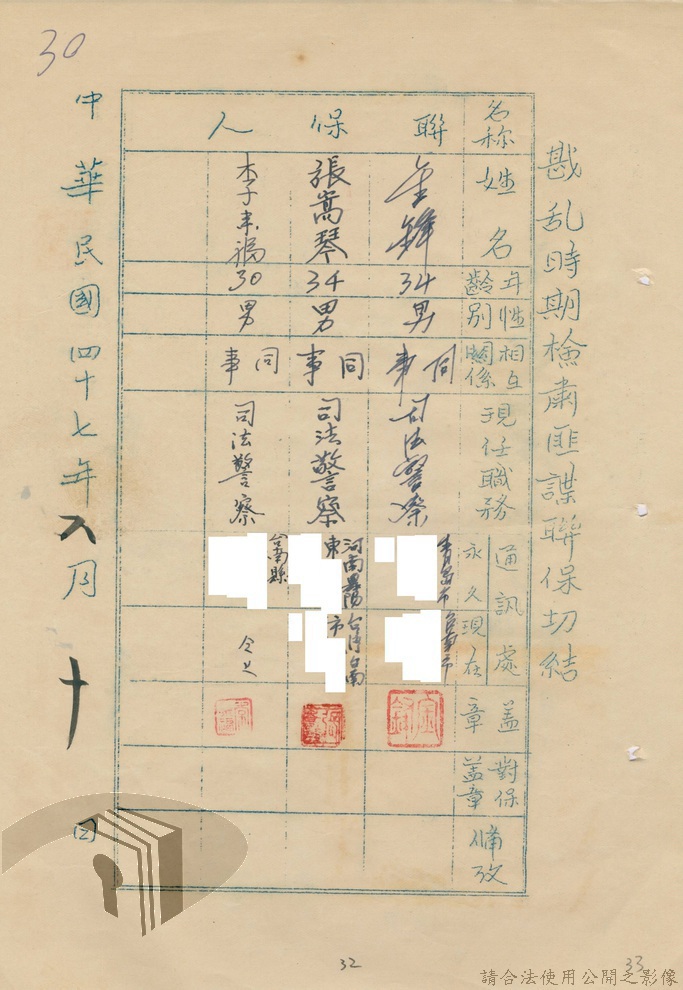 30
戡乱時期檢肅匪諜聯保切結
名称
姓名
年齡
性別
相互關係
現任職務
通訊處
永久
現在
盖章
對保盖章
備攷
聯保人
金鋒
34
男
同事
司法警察
青島市
台南市
張嵩琴
34
男
同事
司法警察
河南
東
台灣台南
市
李
福
30
男
同事
司法警察
台南縣
仝上
中華民國四十七年八月十日
32
33
請合法使用公開之影像